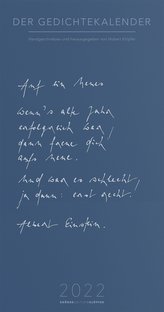 DER GEDICHTEKALENDER
Handgeschrieben und herausgegeben von Hubert Klöpfer
Auf ein Neues
wenn's alte Jahr
erfolgreich war,
dann freue dich
aufs neue.
Und war es schlecht,
ja dann: erst recht.
Albert Einstein.
2022